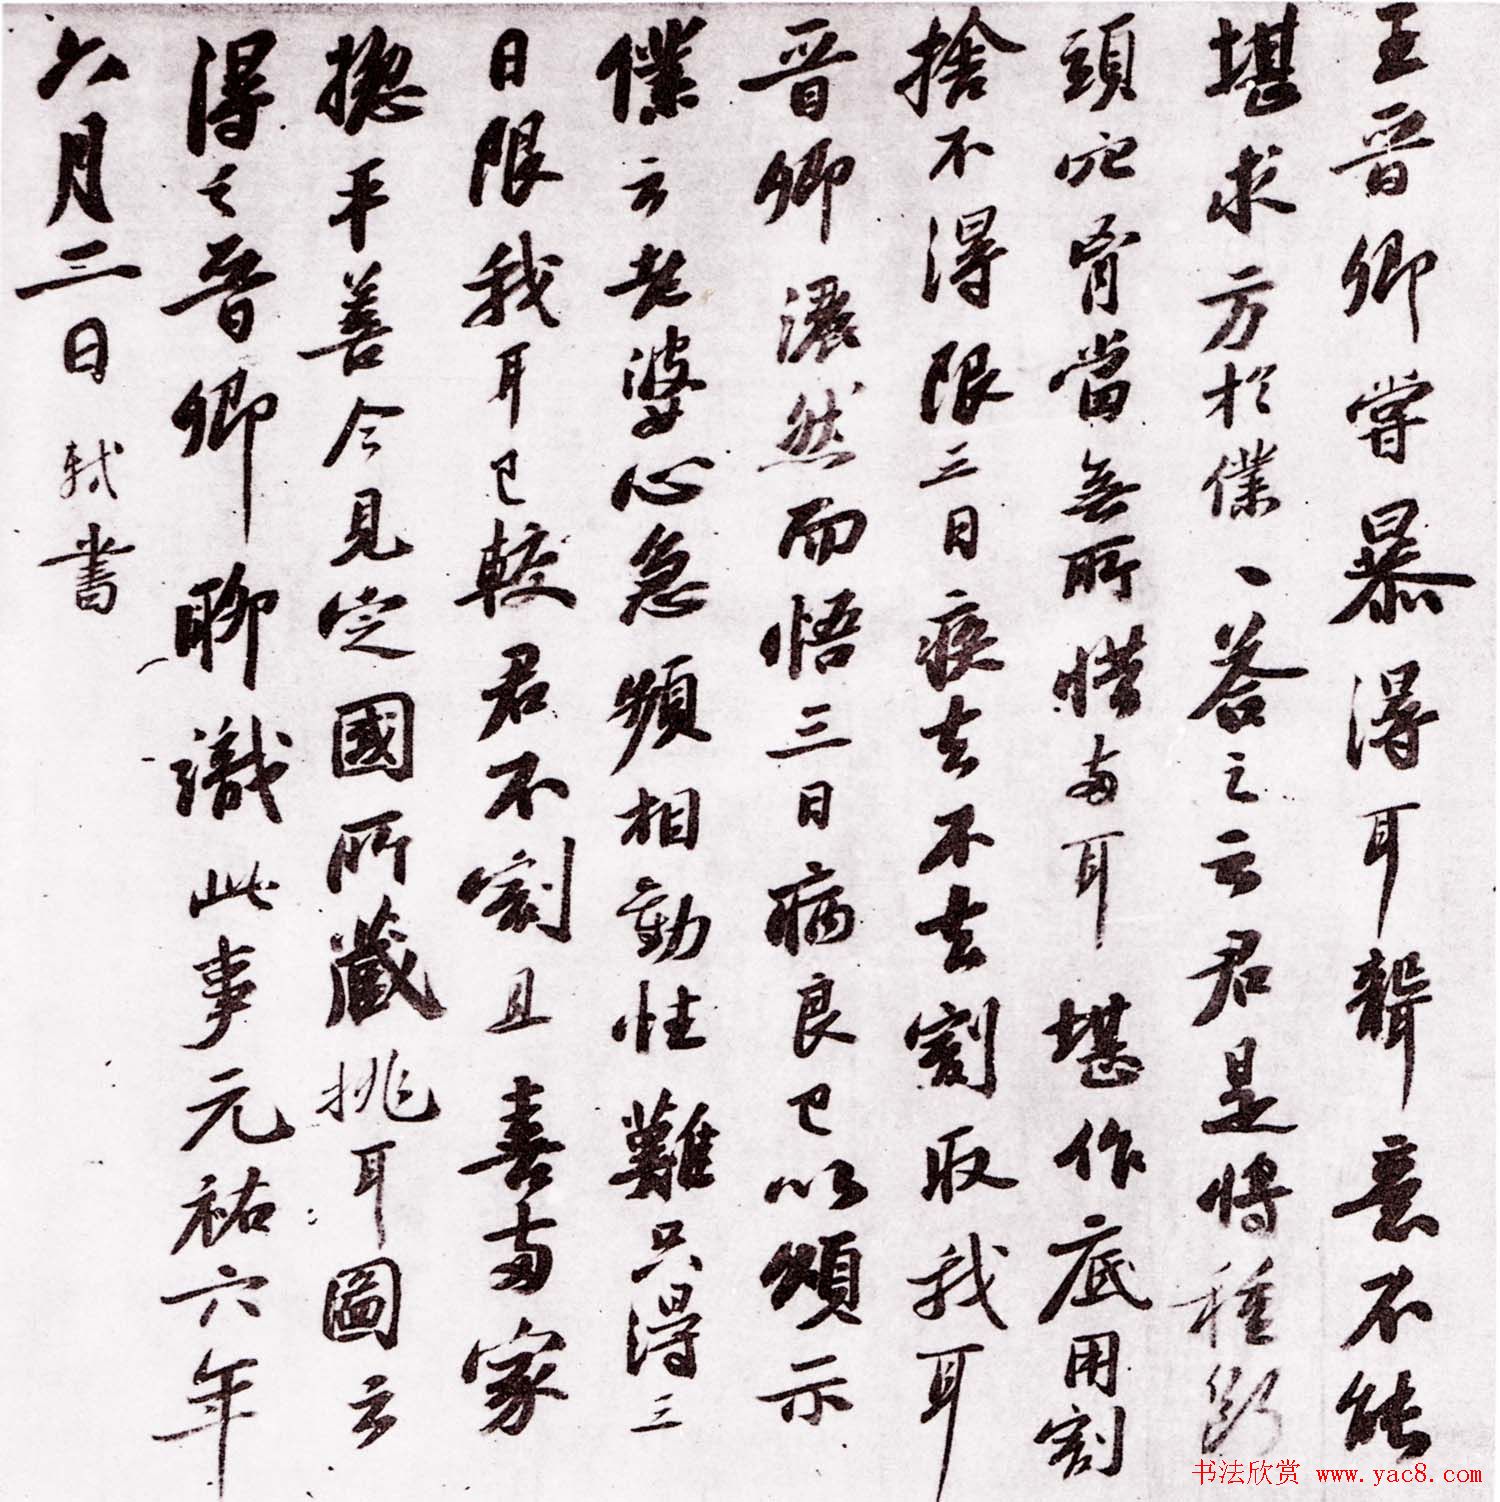 王晉卿嘗暴得耳聾意不能
堪求方於僕僕答之云君是將種斷
頭穴胷當無所惜两耳堪作底用割
捨不得限三日疾去不去割取我耳
晉卿灑然而悟三日病良已以頌示
僕云老婆心急頻相勸性難只得三
日限我耳已較君不割且喜两家
揔平善今見定國所藏挑耳圖云
得之晉卿聊識此事元祐六年
六月三日軾書
书法欣赏 www.yac8.com